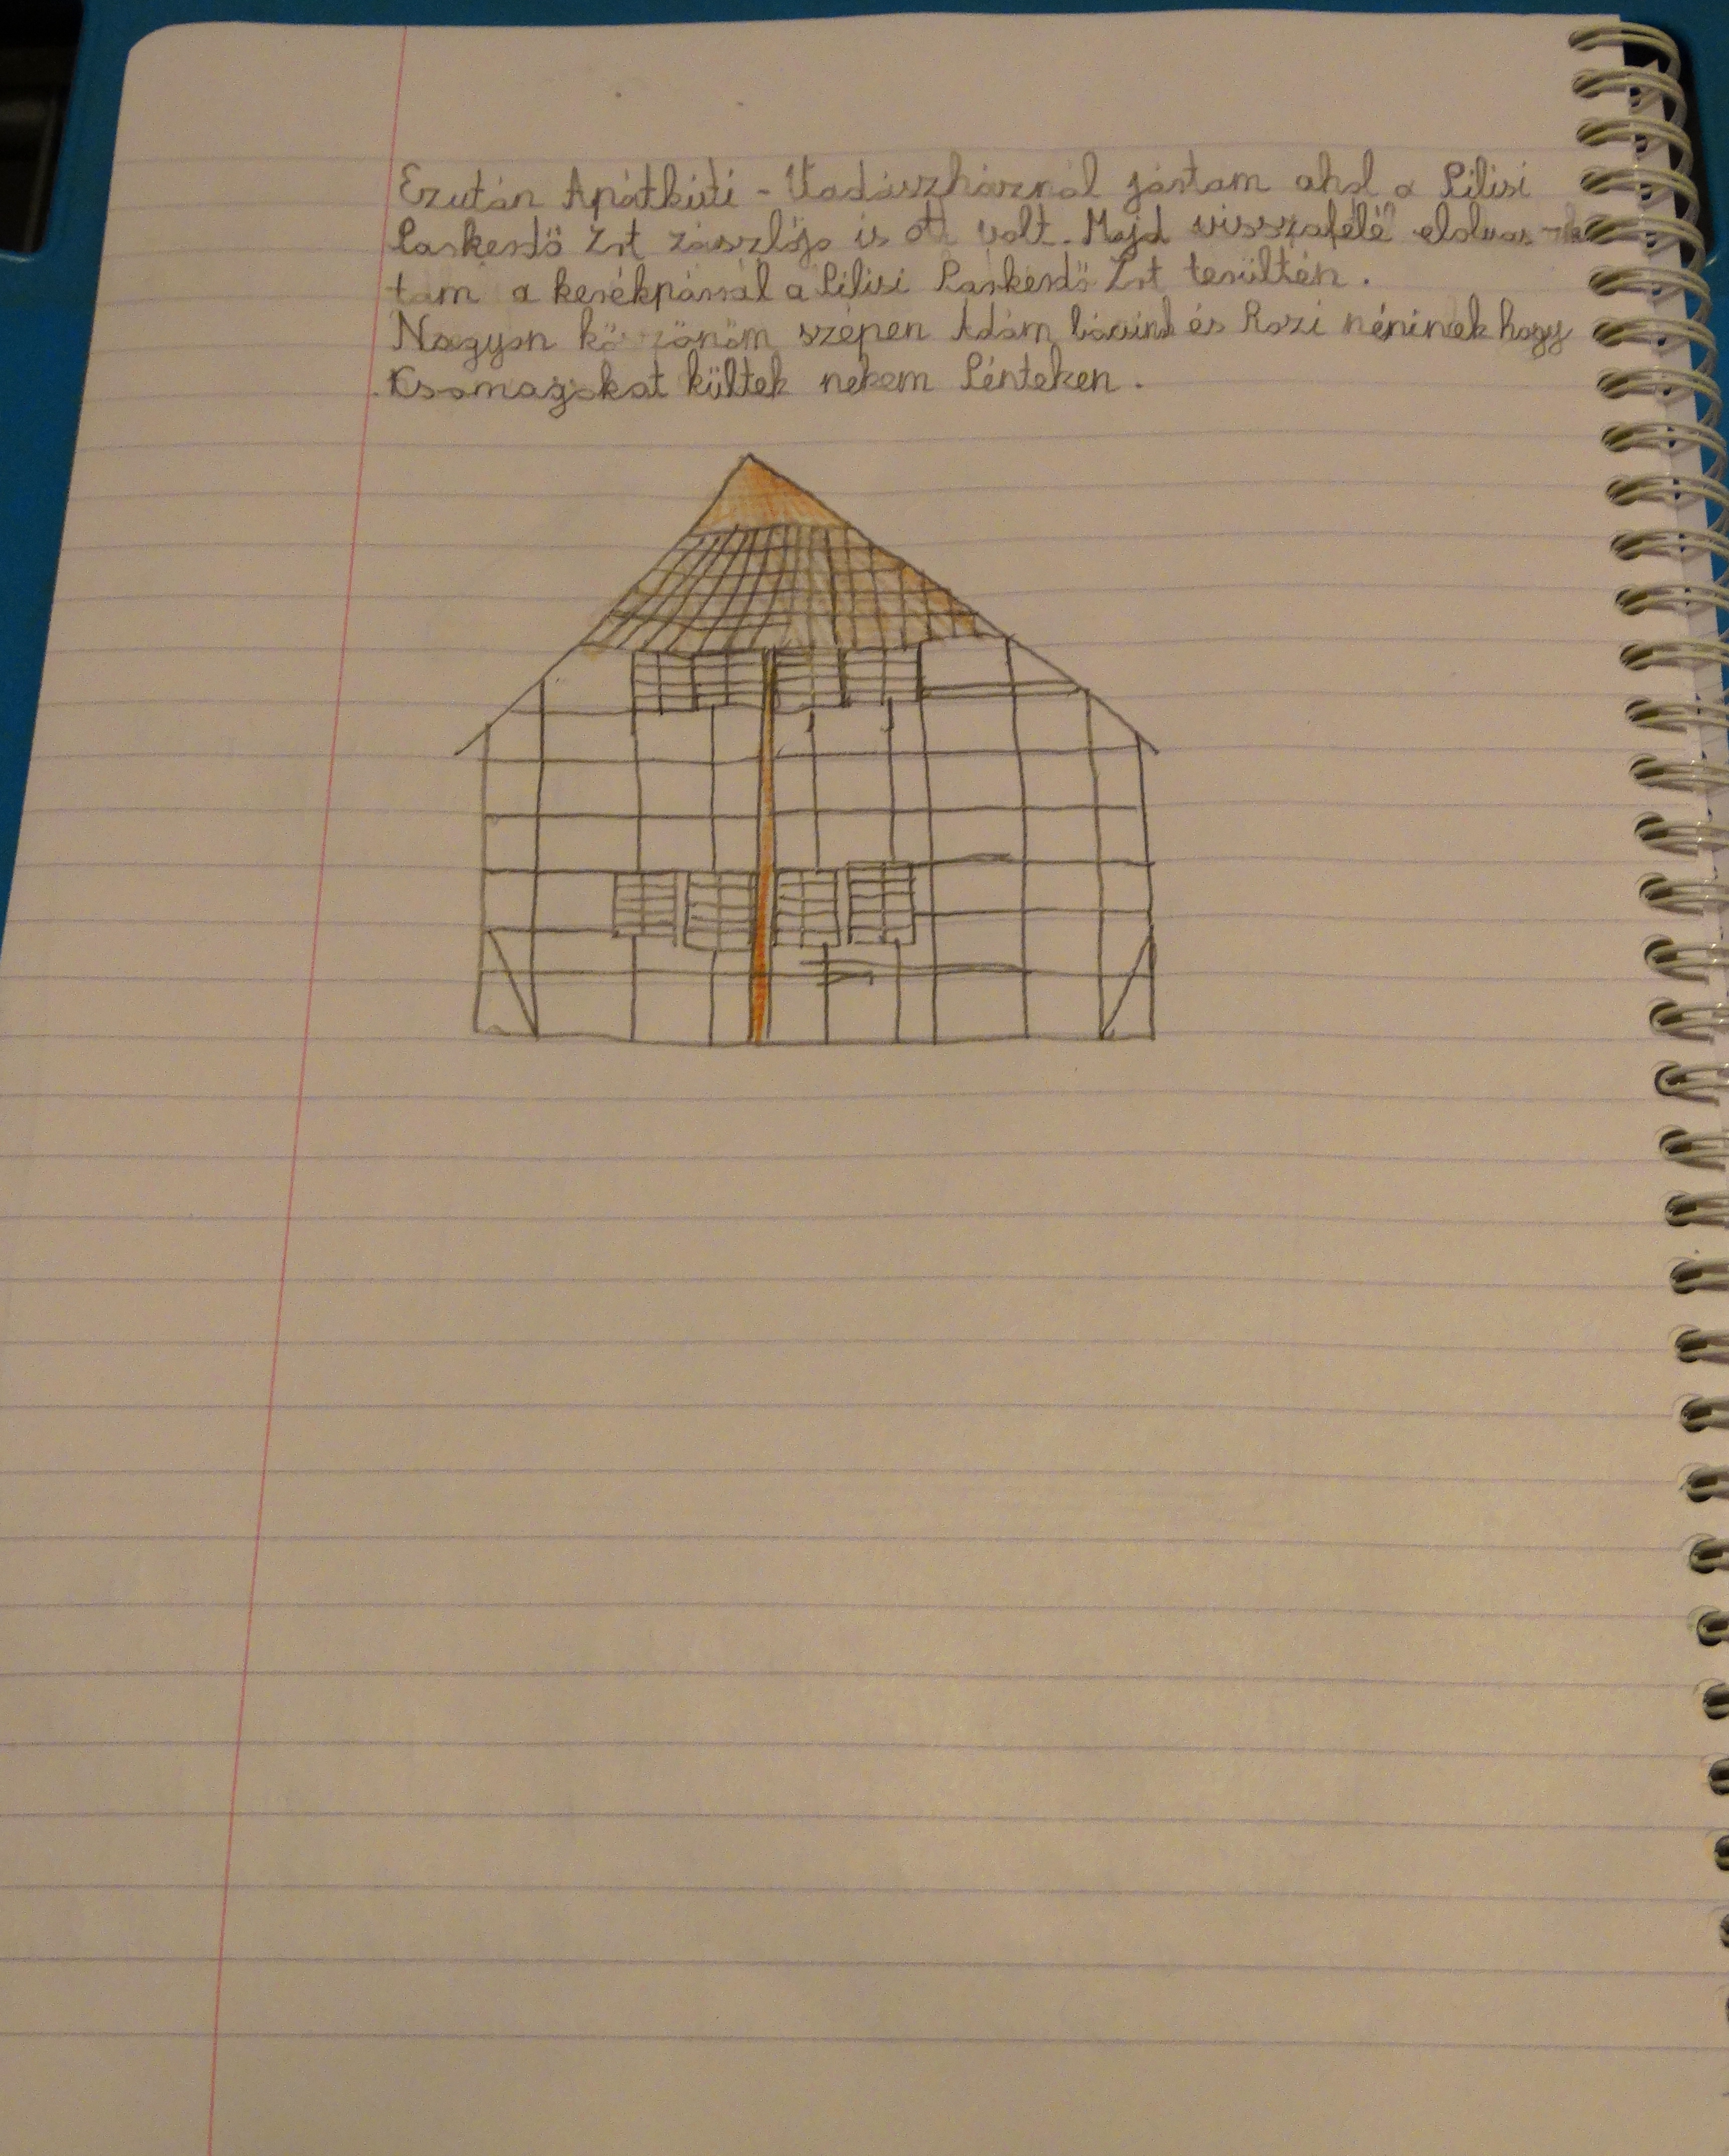 Ezután Apátkúti - Vadászháznál jártam ahol a Pilisi
Parkerdő Zrt zászlója is ott volt. Majd visszafelé elolvas
tam a kerékpárral a Pilisi Parkerdő Zrt terültén.
Nagyon köszönöm szépen Ádám bácsink és Rozi néninek hogy
Csomagokat kültek nekem Pénteken.